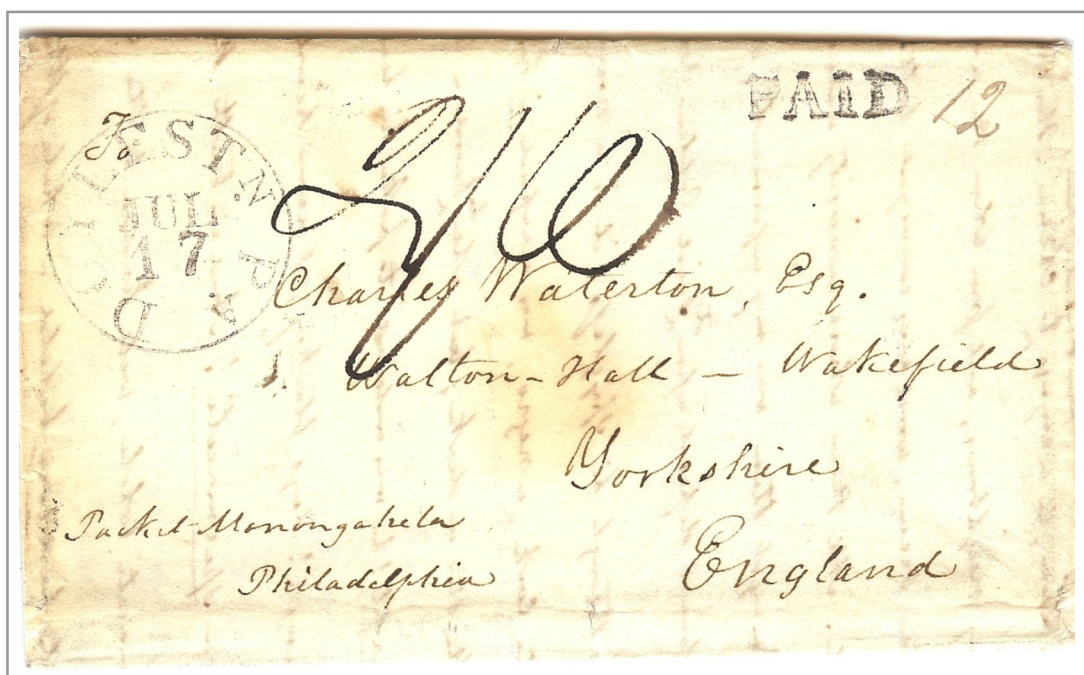 PAID 12
To
DOYLEST.N PA.
JUL
17
Charles Waterton, Esq.
Walton-Hall — Wakefield
Yorkshire
England
Packet Monongahela
Philadelphia